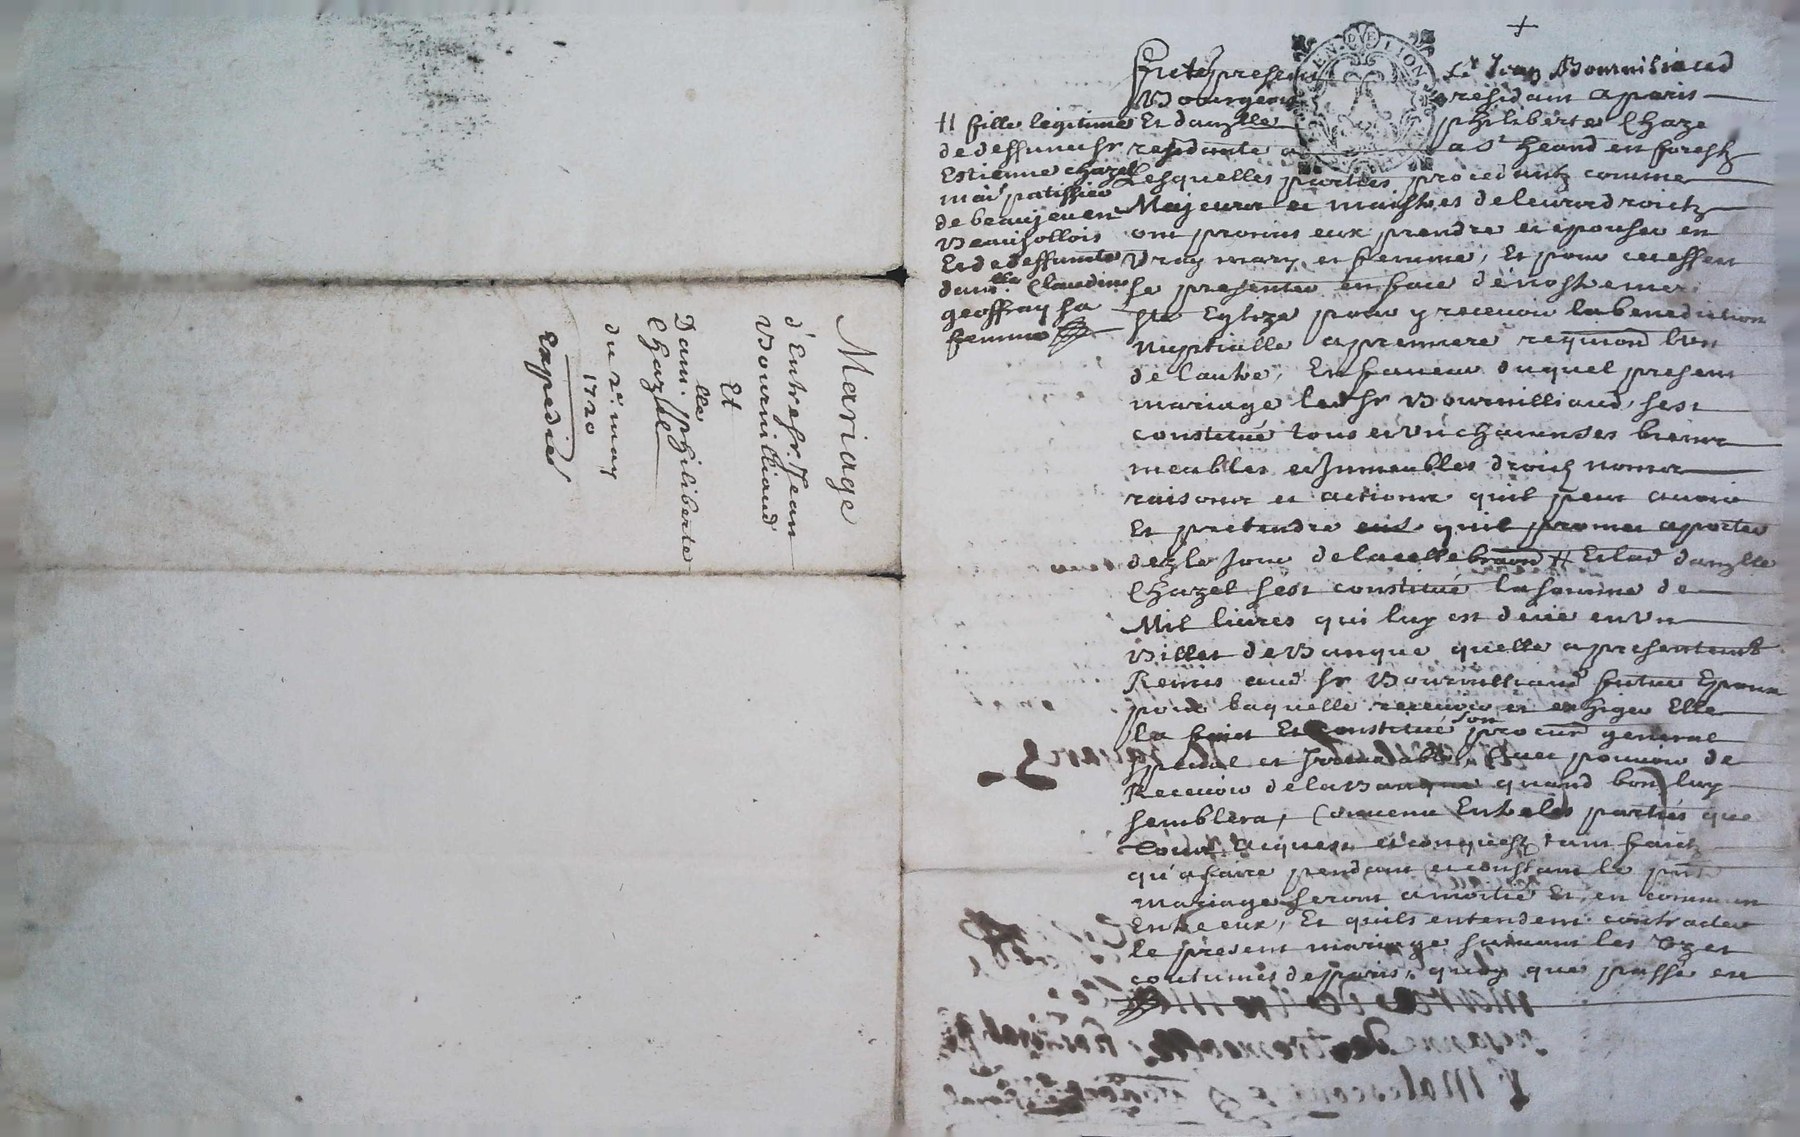 Mariage
d'Entre sr. Jean
Bournilliaud
Et
Dam.lle philiberte
Chazelle
du 2e. may
1720
Expedié
GEN DE LION
furent presens sr Jean Bournilliaud
Bourgeois residant a paris
Et damlle philiberte Chaze
residante a a St heand en forestz
Lesquelles parties procedantz comme
Majeurs et maistres de leurs droictz
ont promis eux prendre et epouser en
vray mary et femme, Et pour cet effect
se presenter en face de nostre mere
ste Eglize pour y recevoir la benediction
Nuptialle a premiere requion lun
de lautre, En faveur duquel present
mariage led sr Bournilliaud sest
constitué tous et un chacuns ses biens
meubles et Immeubles droitz noms
raisons et actions quil peut avoir
Et pretendre quil promet aporter
dez le Jour de la cellebraon # Et lad damlle
Chazel sest constitué la somme de
Mil livres qui luy est deüe en un
Billet de Banque quelle a presentemt
Remis aud sr Bournilliaud futur Epoux
pour laquelle recevoir et exhiger Elle
la fait Et constitué son procur general
special et Irrevocable, avec pouvoir de
Recevoir de la Banque quand bon luy
semblera, Convenu Entre les parties que
Tous acquest et conquestz tant faictz
qu'a faire pendant et constant le pnt
mariage seront a moitié Et en commun
Entre eux, Et quils entendent contracter
le present mariage suivant les Uz et
coutumes de paris, quoy que passé en
# fille legitime
de deffunct sr
Estienne chazel
mai patissier
de beaujeu en
Beaujollois
Et de deffuncte
damlle Claudine
geoffray sa
femme